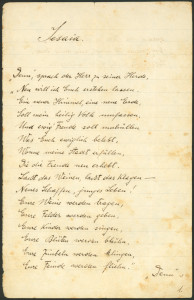 Jesaia.
"Denn", sprach der Herr zu seiner Herde,
"Nun will ich Euch erstehen lassen
Ein neuer Himmel, eine neue Erde,
Soll mein heilig Volk umfassen
Und ewig Freude soll
Was Euch ewiglich belebt,
Wonne meine Stadt erfüllen.
Bis die Freude neu erhebt.
Laut das Weinen, laut das Klagen —
Neues Schaffen, junges Leben!
Eure Weine werden tragen,
Eure Felder werden geben,
Eure Kinder werden singen,
Eure Blüten werden blühen,
Eure Zimbeln werden klingen,
Eure Feinde werden fliehn!"